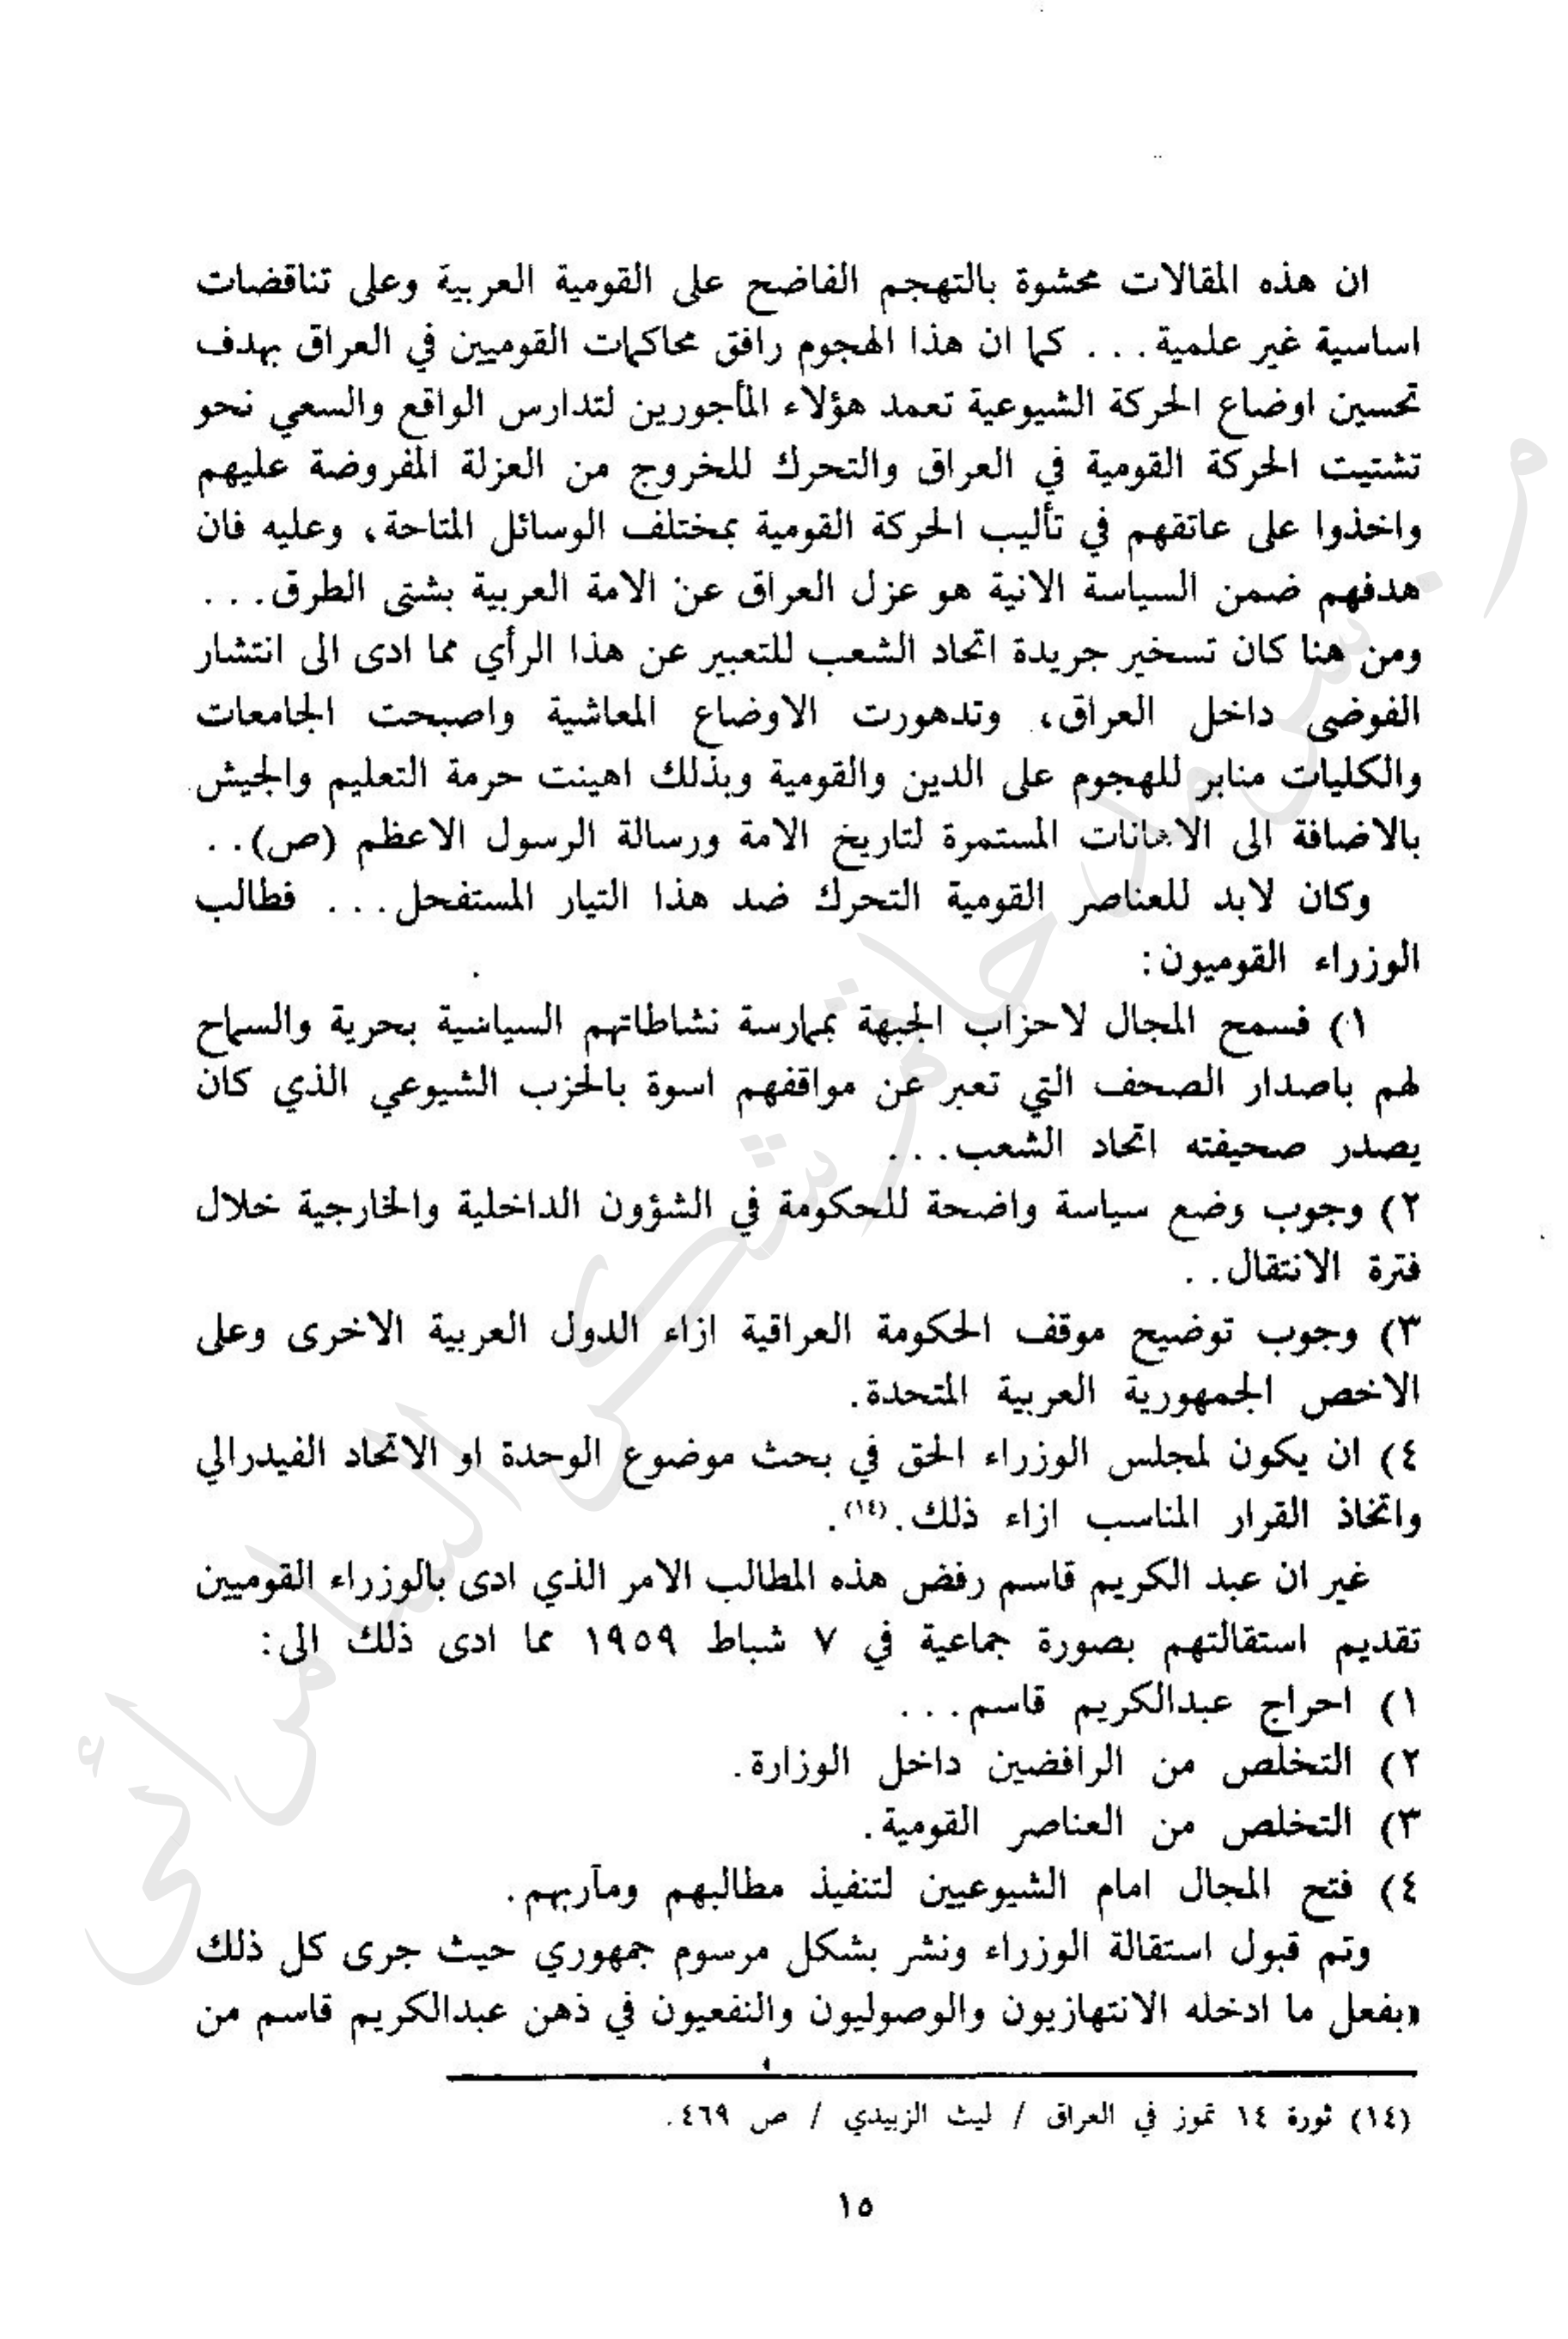 ان هذه المقالات محشوة بالتهجم الفاضح على القومية العربية وعلى تناقضات
اساسية غير علمية... كما ان هذا الهجوم رافق محاكمات القوميين في العراق بهدف
تحسين اوضاع الحركة الشيوعية تعمد هؤلاء المأجورين لتدارس الواقع والسعي نحو
تشتيت الحركة القومية في العراق والتحرك للخروج من العزلة المفروضة عليهم
واخذوا على عاتقهم في تأليب الحركة القومية بمختلف الوسائل المتاحة، وعليه فان
هدفهم ضمن السياسة الانية هو عزل العراق عن الامة العربية بشتى الطرق...
ومن هنا كان تسخير جريدة اتحاد الشعب للتعبير عن هذا الرأي مما ادى الى انتشار
الفوضى داخل العراق، وتدهورت الاوضاع المعاشية واصبحت الجامعات
والكليات منابر للهجوم على الدين والقومية وبذلك اهينت حرمة التعليم والجيش
بالاضافة الى الاهانات المستمرة لتاريخ الامة ورسالة الرسول الاعظم (ص)..
وكان لابد للعناصر القومية التحرك ضد هذا التيار المستفحل... فطالب
الوزراء القوميون:
١) فسمح المجال لاحزاب الجبهة بممارسة نشاطاتهم السياسية بحرية والسماح
لهم باصدار الصحف التي تعبر عن مواقفهم اسوة بالحزب الشيوعي الذي كان
يصدر صحيفته اتحاد الشعب...
٢) وجوب وضع سياسة واضحة للحكومة في الشؤون الداخلية والخارجية خلال
فترة الانتقال..
٣) وجوب توضيح موقف الحكومة العراقية ازاء الدول العربية الاخرى وعلى
الاخص الجمهورية العربية المتحدة.
٤) ان يكون لمجلس الوزراء الحق في بحث موضوع الوحدة او الاتحاد الفيدرالي
واتخاذ القرار المناسب ازاء ذلك.(١٤).
غير ان عبد الكريم قاسم رفض هذه المطالب الامر الذي ادى بالوزراء القوميين
تقديم استقالتهم بصورة جماعية في ٧ شباط ١٩٥٩ مما ادى ذلك الى:
١) احراج عبدالكريم قاسم...
٢) التخلص من الرافضين داخل الوزارة.
٣) التخلص من العناصر القومية.
٤) فتح المجال امام الشيوعيين لتنفيذ مطالبهم ومآربهم.
وتم قبول استقالة الوزراء ونشر بشكل مرسوم جمهوري حيث جرى كل ذلك
«بفعل ما ادخله الانتهازيون والوصوليون والنفعيون في ذهن عبدالكريم قاسم من
(١٤) ثورة ١٤ تموز في العراق / ليث الزبيدي / ص ٤٦٩.
١٥